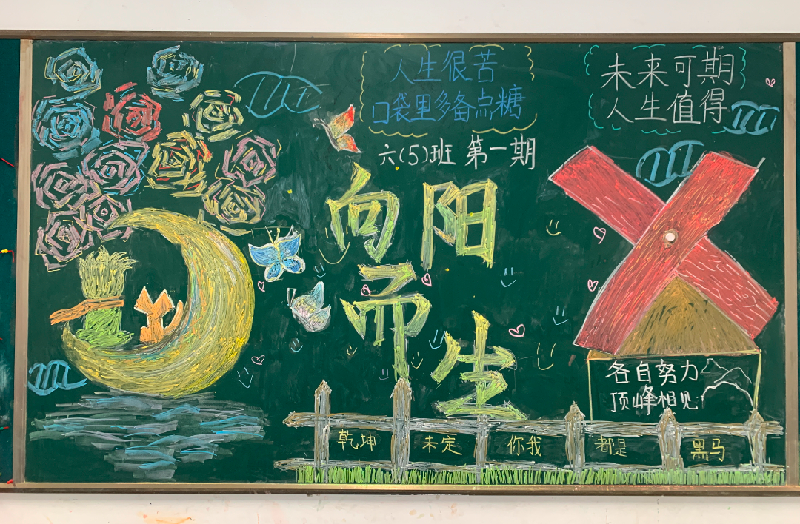 人生很苦
口袋里多备点糖
未来可期
人生值得
六(5)班 第一期
向阳
而
生
各自努力
顶峰相见
乾坤 未定 你我 都是 黑马